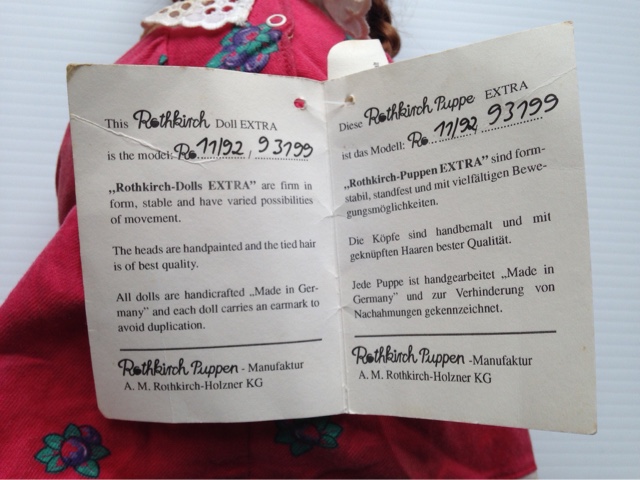 This Rothkirch Doll EXTRA
is the model: Ro 11/92, 93199
„Rothkirch-Dolls EXTRA” are firm in
form, stable and have varied possibilities
of movement.
The heads are handpainted and the tied hair
is of best quality.
All dolls are handicrafted „Made in Ger-
many” and each doll carries an earmark to
avoid duplication.
Rothkirch Puppen - Manufaktur
A. M. Rothkirch-Holzner KG
Diese Rothkirch Puppe EXTRA
ist das Modell: Ro. 11/92, 93199
„Rothkirch-Puppen EXTRA” sind form-
stabil, standfest und mit vielfältigen Bewe-
gungsmöglichkeiten.
Die Köpfe sind handbemalt und mit
geknüpften Haaren bester Qualität.
Jede Puppe ist handgearbeitet „Made in
Germany” und zur Verhinderung von
Nachahmungen gekennzeichnet.
Rothkirch Puppen -Manufaktur
A. M. Rothkirch-Holzner KG